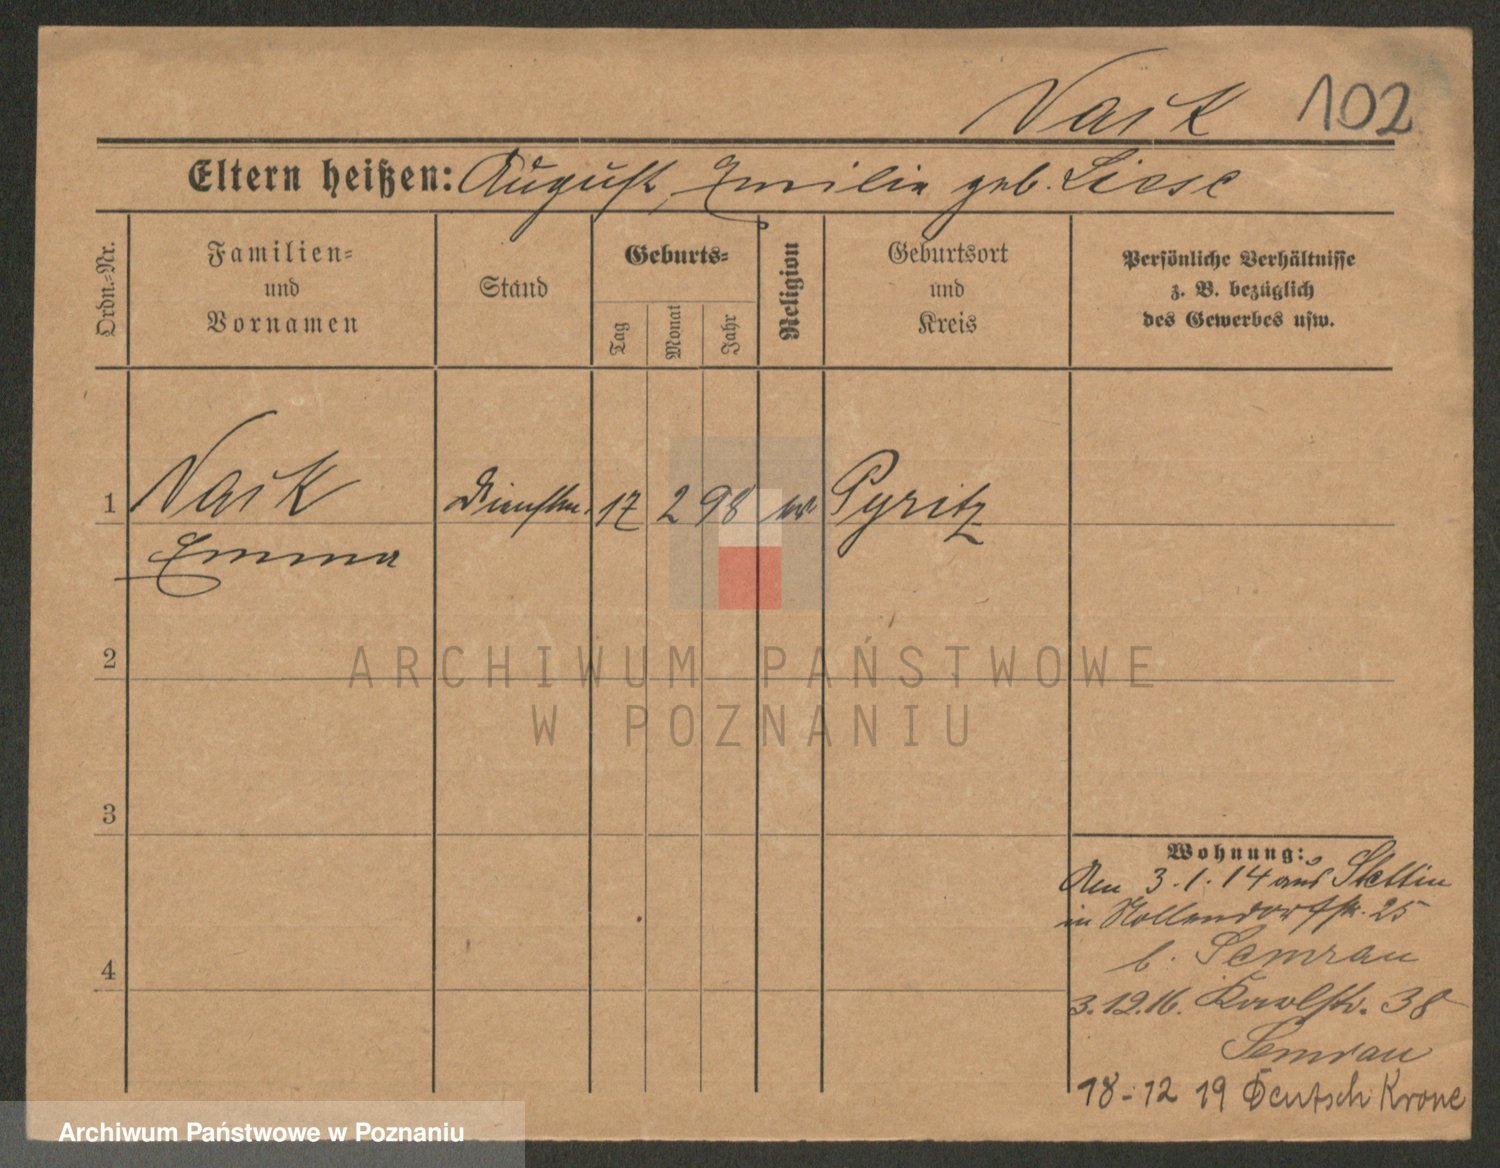 Naik 102
Eltern heißen: August, Emilie geb. Liese
Ordn.-Nr.
Familien-
und
Vornamen
Stand
Geburts-
Tag
Monat
Jahr
Religion
Geburtsort
und
Kreis
Persönliche Verhältnisse
z. B. bezüglich
des Gewerbes usw.
1 Naik Dienstm. 17 2 98 ev Pyritz
Emma
2
ARCHIWUM PAŃSTWOWE
W POZNANIU
3
Wohnung:
Am 3.1.14 aus Stettin
in Nollendorfstr. 25
b. Semrau
4
3.12.16. Karlstr. 38
Semrau
18-12 19 Deutsch Krone
Archiwum Państwowe w Poznaniu